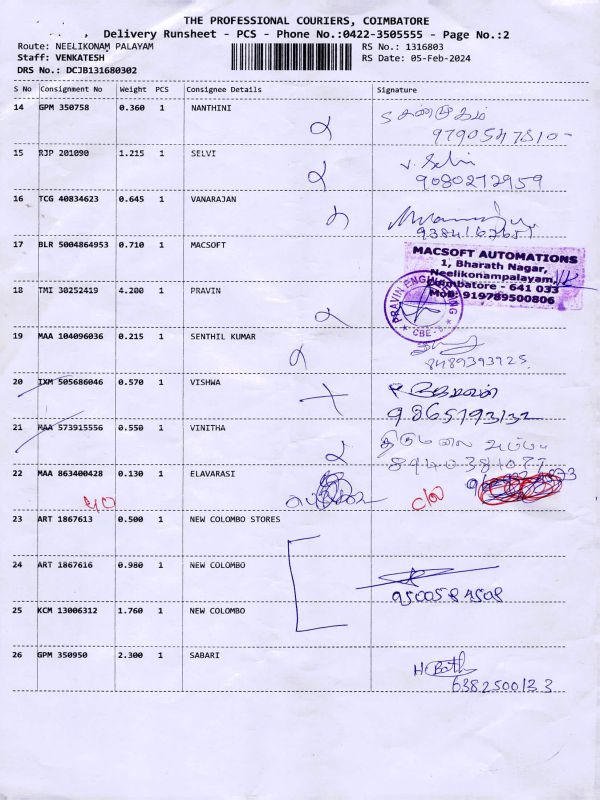 THE PROFESSIONAL COURIERS, COIMBATORE
Delivery Runsheet - PCS - Phone No.:0422-3505555 - Page No.:2
Route: NEELIKONAM PALAYAM RS No.: 1316803
Staff: VENKATESH RS Date: 05-Feb-2024
DRS No.: DCJB131680302
S No Consignment No Weight PCS Consignee Details Signature
14 GPM 350758 0.360 1 NANTHINI
9790547810-
15 RJP 201090 1.215 1 SELVI V. Selvi
9080272959
16 TCG 40834623 0.645 1 VANARAJAN
17 BLR 5004864953 0.710 1 MACSOFT
MACSOFT AUTOMATIONS
1, Bharath Nagar,
Neelikonampalayam,
Coimbatore - 641 033
Mob: 919789500806
18 TMI 30252419 4.200 1 PRAVIN
PRAVIN ENGINEERING
* CBE-5. *
19 MAA 104096036 0.215 1 SENTHIL KUMAR
8489393925
20 IXM 505686046 0.570 1 VISHWA
9865793132
21 MAA 573915556 0.550 1 VINITHA திருமலை
22 MAA 863400428 0.130 1 ELAVARASI
c/o
23 ART 1867613 0.500 1 NEW COLOMBO STORES
24 ART 1867616 0.980 1 NEW COLOMBO
25 KCM 13006312 1.760 1 NEW COLOMBO
26 GPM 350950 2.300 1 SABARI
6382500133